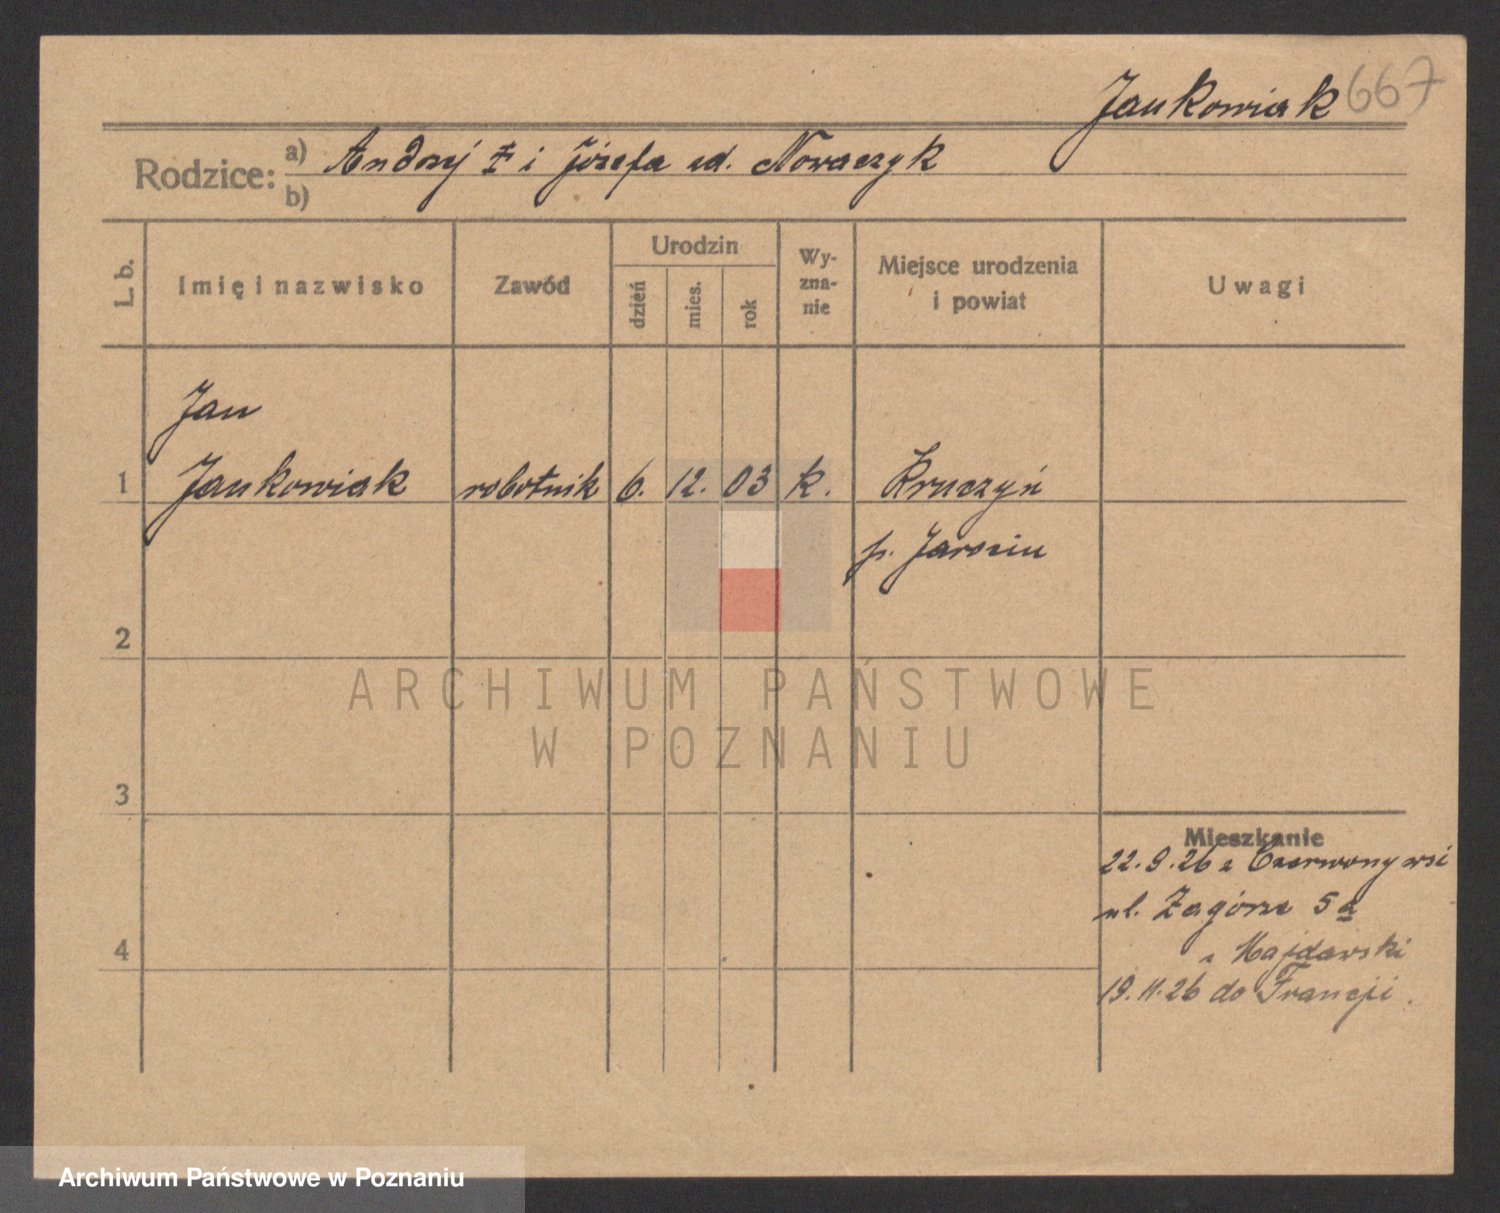 Jankowiak 667
Rodzice: a) Andrzej ‡ i Józefa zd. Nowaczyk
b)
L. b. Imię i nazwisko Zawód Urodzin dzień mies. rok Wy-zna-nie Miejsce urodzenia i powiat Uwagi
Jan
1 Jankowiak robotnik 6. 12. 03 k. Kruczyń
p. Jarocin
2
ARCHIWUM PAŃSTWOWE
W POZNANIU
3
Mieszkanie
22.9.26 z Czerwonej wsi
ul. Zagórze 5a
4
z Majdawski
19.11.26 do Francji.
Archiwum Państwowe w Poznaniu